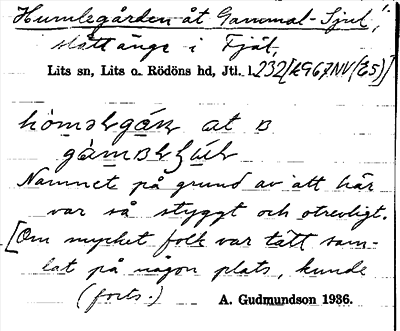 Humlegården åt Gammal-Sjul,
slåttänge i Fjäl,
Lits sn, Lits o. Rödöns hd, Jtl. l. 232
at
Namnet på grund av att här
var så styggt och otrevligt.
[Om mycket folk var tätt sam-
lat på någon plats, kunde
(forts.) A. Gudmundson 1936.